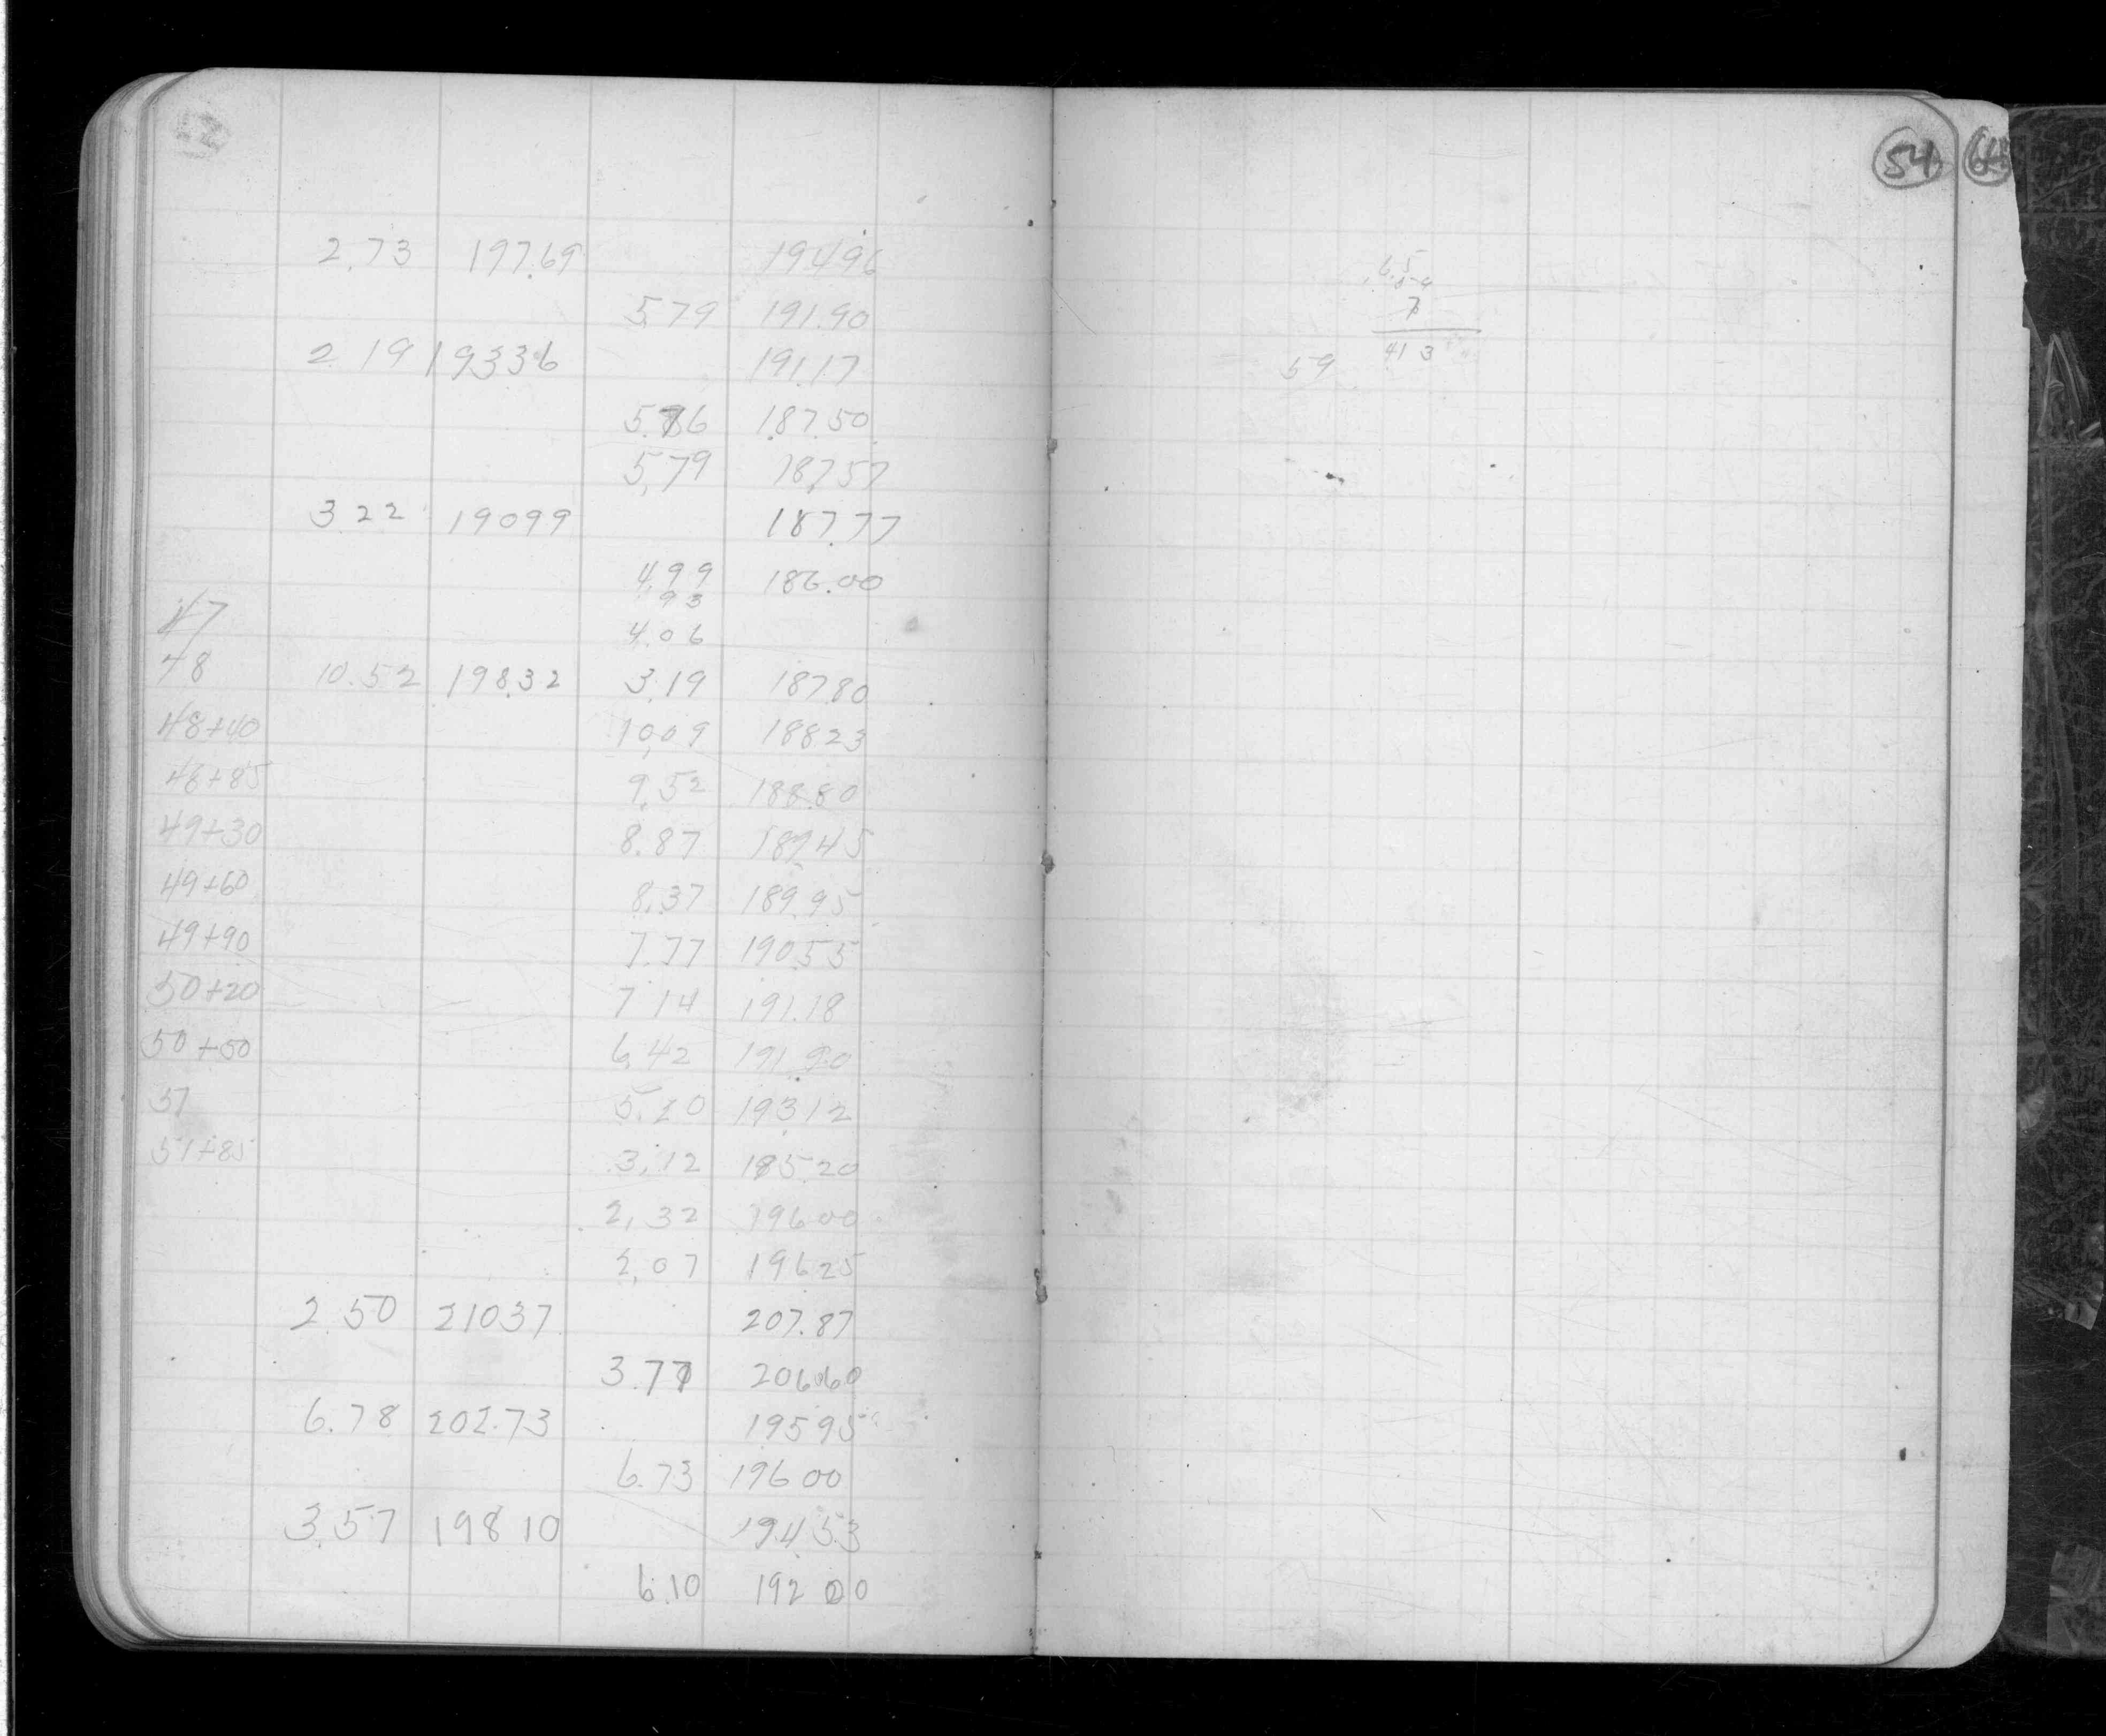 54
2.73 197.69 194.96
5.79 191.90
2.19 193.36 191.17
5.86 187.50
5.79 187.57
3.22 190.99 187.77
4.99 186.00
.93
47 4.06
48 10.52 198.32 3.19 187.80
48+40 10.09 188.23
48+85 9.52 188.80
49+30 8.87 189.45
49+60 8.37 189.95
49+90 7.77 190.55
50+20 7.14 191.18
50+50 6.42 191.90
51 5.20 193.12
51+85 3.12 195.20
2.32 196.00
2.07 196.25
2.50 210.37 207.87
3.77 206.60
6.78 202.73 195.95
6.73 196.00
3.57 198.10 194.53
6.10 192.00
6.5
7
59 413